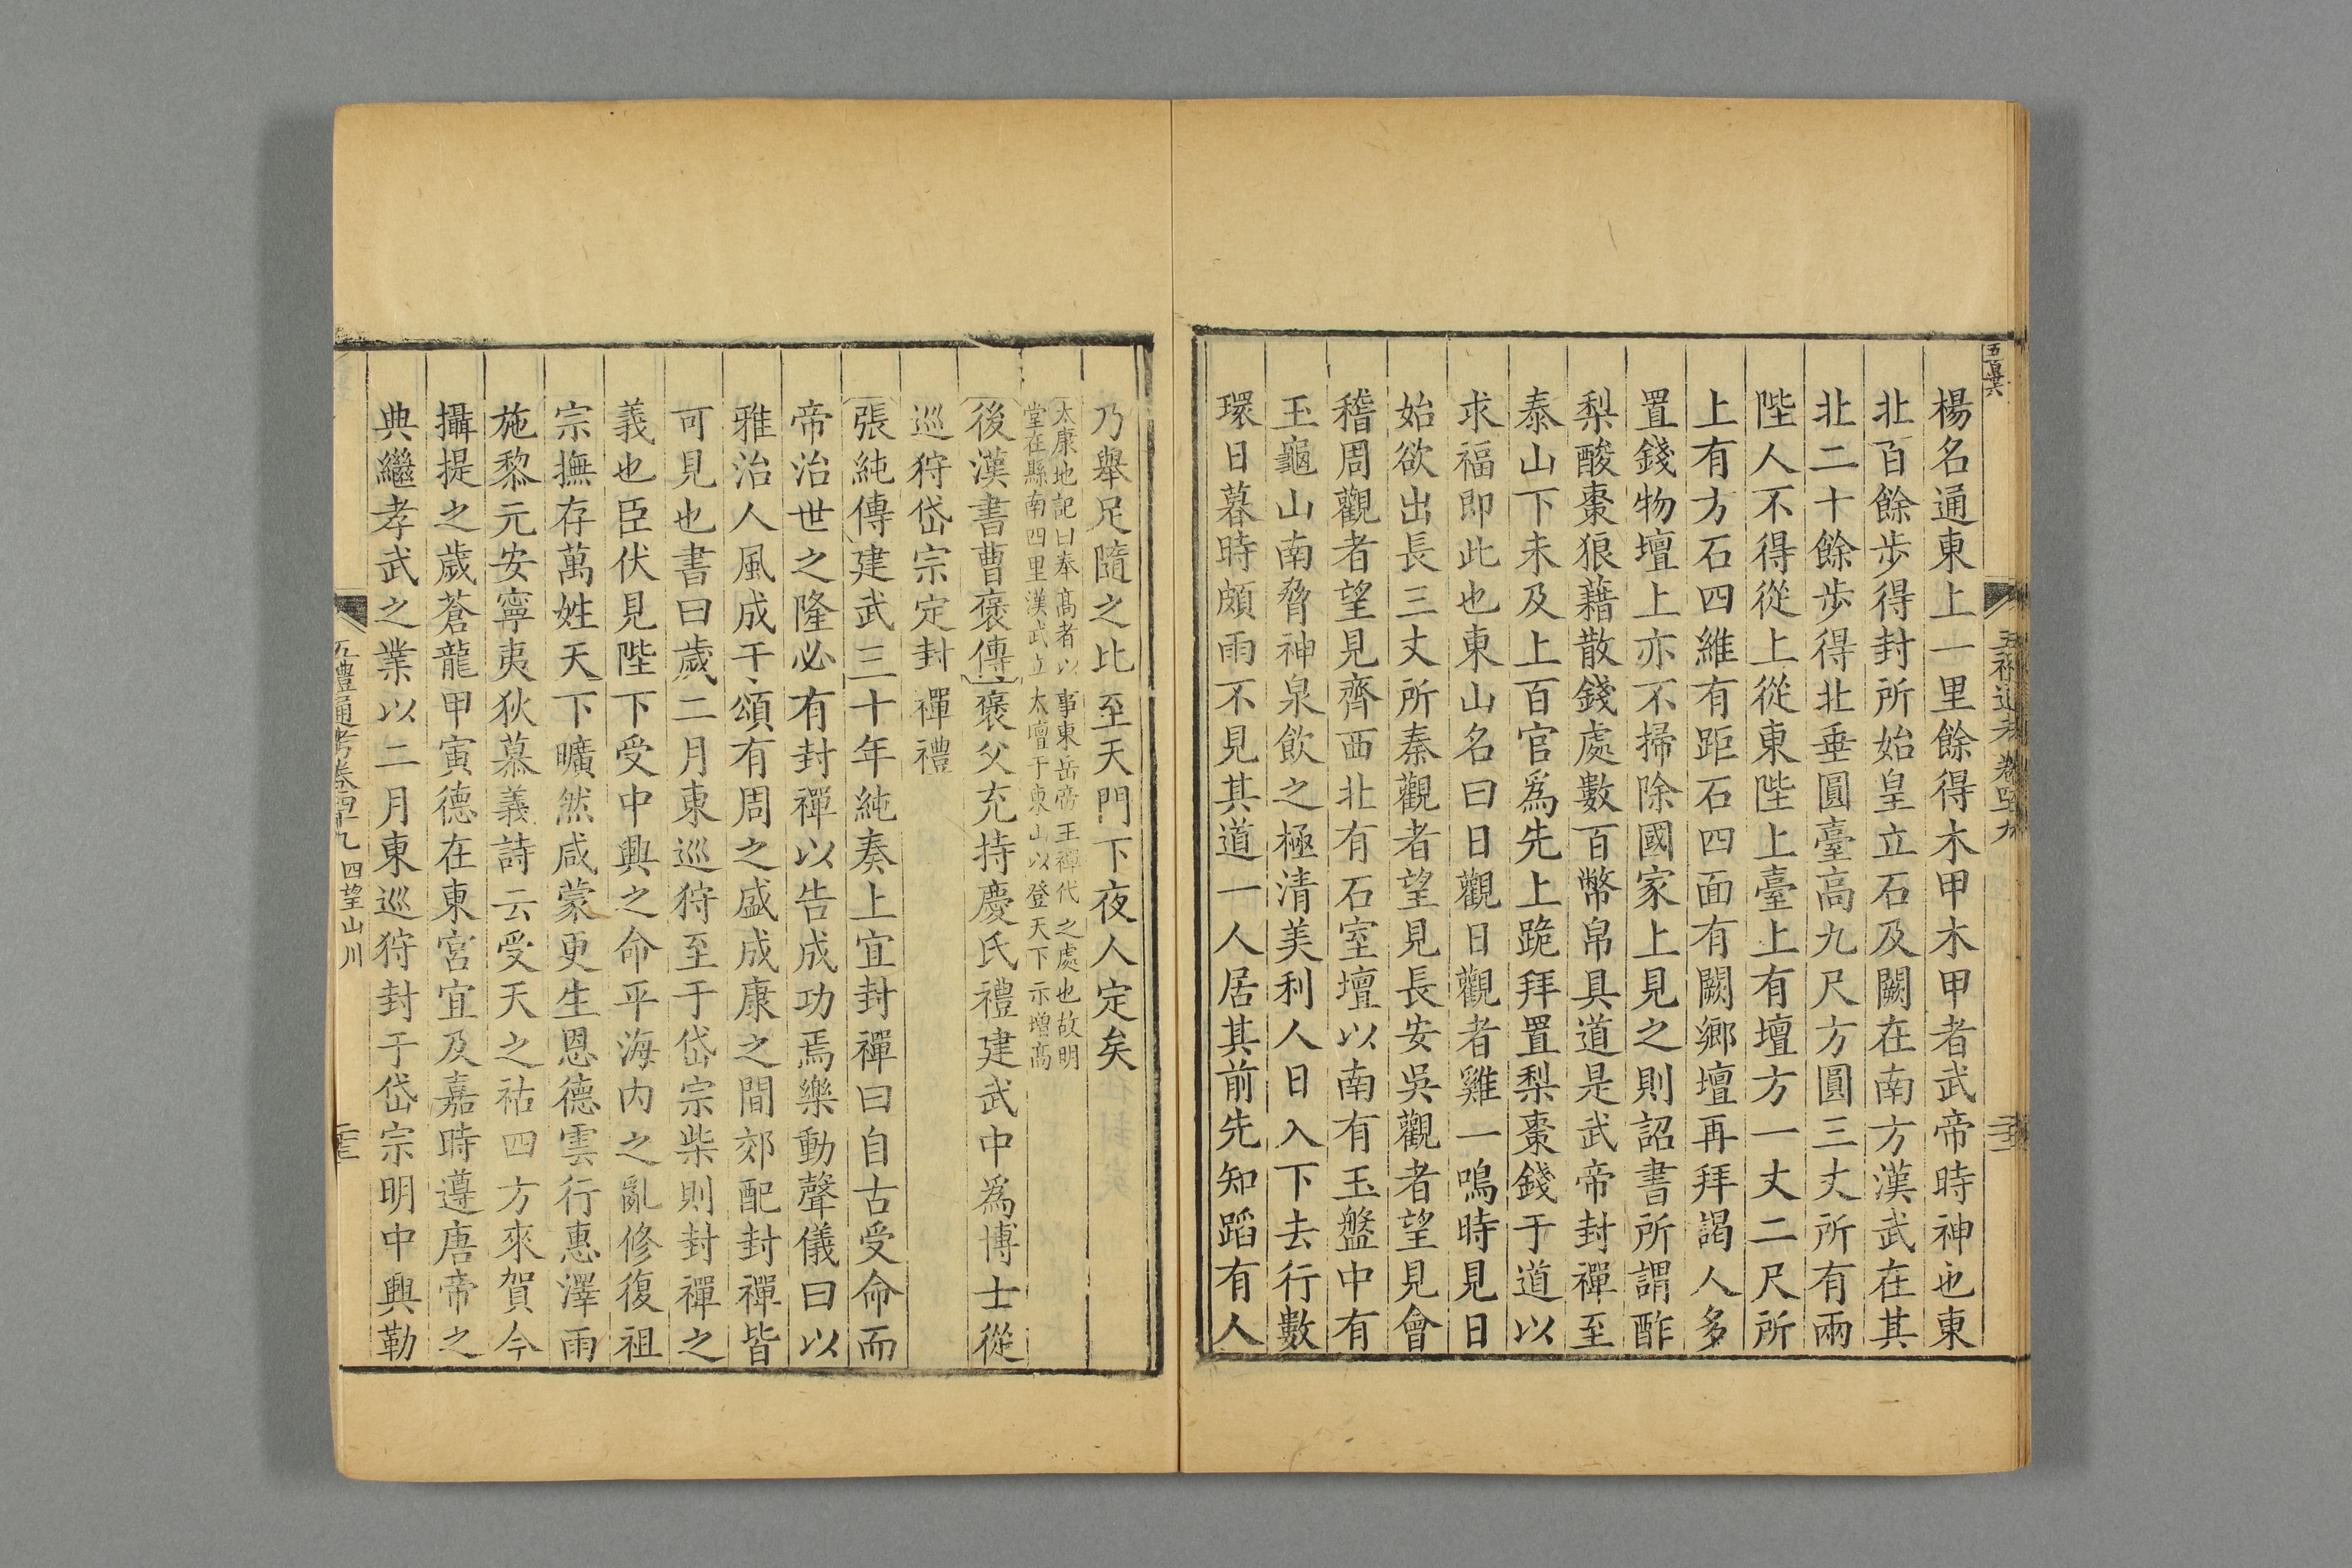 楊名通東上一里餘得木甲木甲者武帝時神也東
北百餘步得封所始皇立石及闕在南方漢武在其
北二十餘步得北垂圓臺高九尺方圓三丈所有兩
陛人不得從上從東陛上臺上有壇方一丈二尺所
上有方石四維有距石四面有闕鄉壇再拜謁人多
置錢物壇上亦不掃除國家上見之則詔書所謂酢
梨酸棗狼藉散錢處數百幣帛具道是武帝封禪至
泰山下未及上百官爲先上跪拜置梨棗錢于道以
求福即此也東山名曰日觀日觀者雞一鳴時見日
始欲出長三丈所秦觀者望見長安吳觀者望見會
稽周觀者望見齊西北有石室壇以南有玉盤中有
玉龜山南脅神泉飲之極清美利人日入下去行數
環日暮時頗雨不見其道一人居其前先知蹈有人
乃舉足隨之比至天門下夜人定矣
太康地記曰奉高者以事東岳帝王禪代之處也故明
堂在縣南四里漢武立太壇于東山以登天下示增高
後漢書曹褒傳褒父充持慶氏禮建武中爲博士從
巡狩岱宗定封禪禮
張純傳建武三十年純奏上宜封禪曰自古受命而
帝治世之隆必有封禪以告成功焉樂動聲儀曰以
雅治人風成于頌有周之盛成康之間郊配封禪皆
可見也書曰歲二月東巡狩至于岱宗柴則封禪之
義也臣伏見陛下受中興之命平海內之亂修復祖
宗撫存萬姓天下曠然咸蒙更生恩德雲行惠澤雨
施黎元安寧夷狄慕義詩云受天之祜四方來賀今
攝提之歲蒼龍甲寅德在東宮宜及嘉時遵唐帝之
典繼孝武之業以二月東巡狩封于岱宗明中興勒
五禮通考卷四十九 四望山川